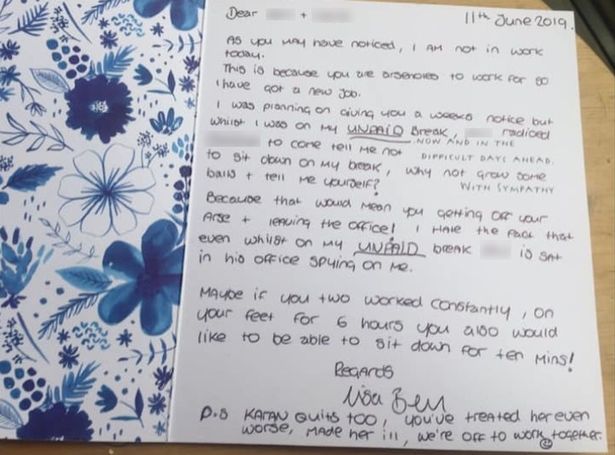 Dear + .
11th June 2019.
As you may have noticed, I am not in work
today.
This is because you are arseholes to work for so
I have got a new job.
I was planning on giving you a weeks notice but
whilst I was on my UNPAID Break, radioed
to come tell me not
NOW AND IN THE
DIFFICULT DAYS AHEAD.
WITH SYMPATHY
to sit down on my break, why not grow some
balls + tell me yourself?
Because that would mean you getting off your
Arse + leaving the office! I hate the fact that
even whilst on my UNPAID break is sat
in his office spying on me.
Maybe if you two worked constantly, on
your feet for 6 hours you also would
like to be able to sit down for ten mins!
Regards
Lisa
P.S KARAN Quits TOO, you've treated her even
worse, made her ill, we're off to work together.